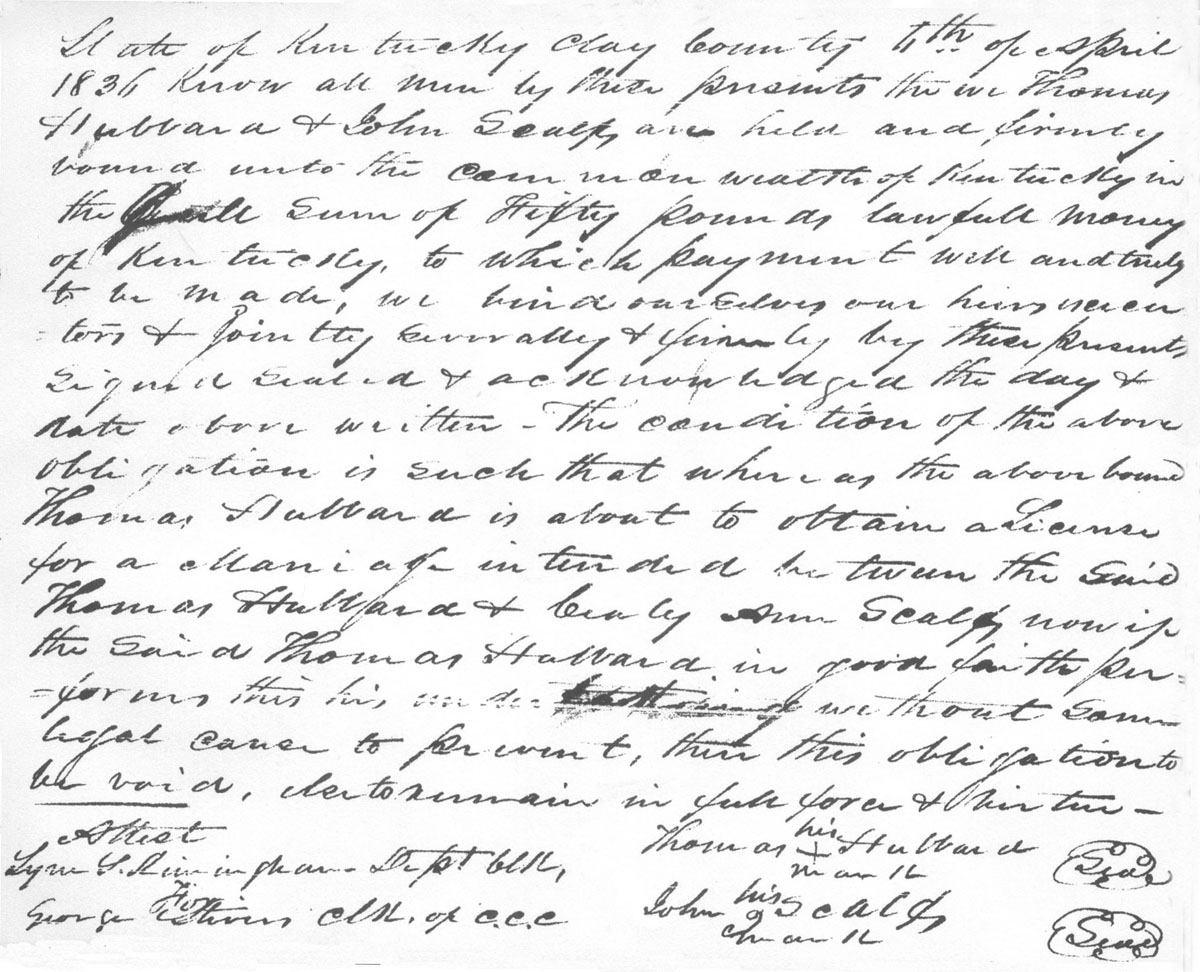 State of Kentucky Clay County 4th of April
1836 Know all men by these presents the we Thomas
Hubbard & John Scalf, are held and firmly
bound unto the common wealth of Kentucky in
the sum of Fifty pounds lawfull money
of Kentucky, to which payment well and truly
to be made, we bind ourselves our heirs execu
=tors & Jointly severally & firmly by these presents
signed sealed & acknowledged the day &
date above written - The condition of the above
obligation is such that where as the above bound
Thomas Hubbard is about to obtain a License
for a Marriage intended between the said
Thomas Hubbard & Ann Scalf, now if
the said Thomas Hubbard in good faith per=
=forms this his under without some
legal cause to prevent, then this obligation to
be void, else to remain in full force & virtue -
Attest
Dept Clk,
For
George Stivers Clk. of C.C.C
his
Thomas + Hubbard Seal
mark
his
John Scalf Seal
mark